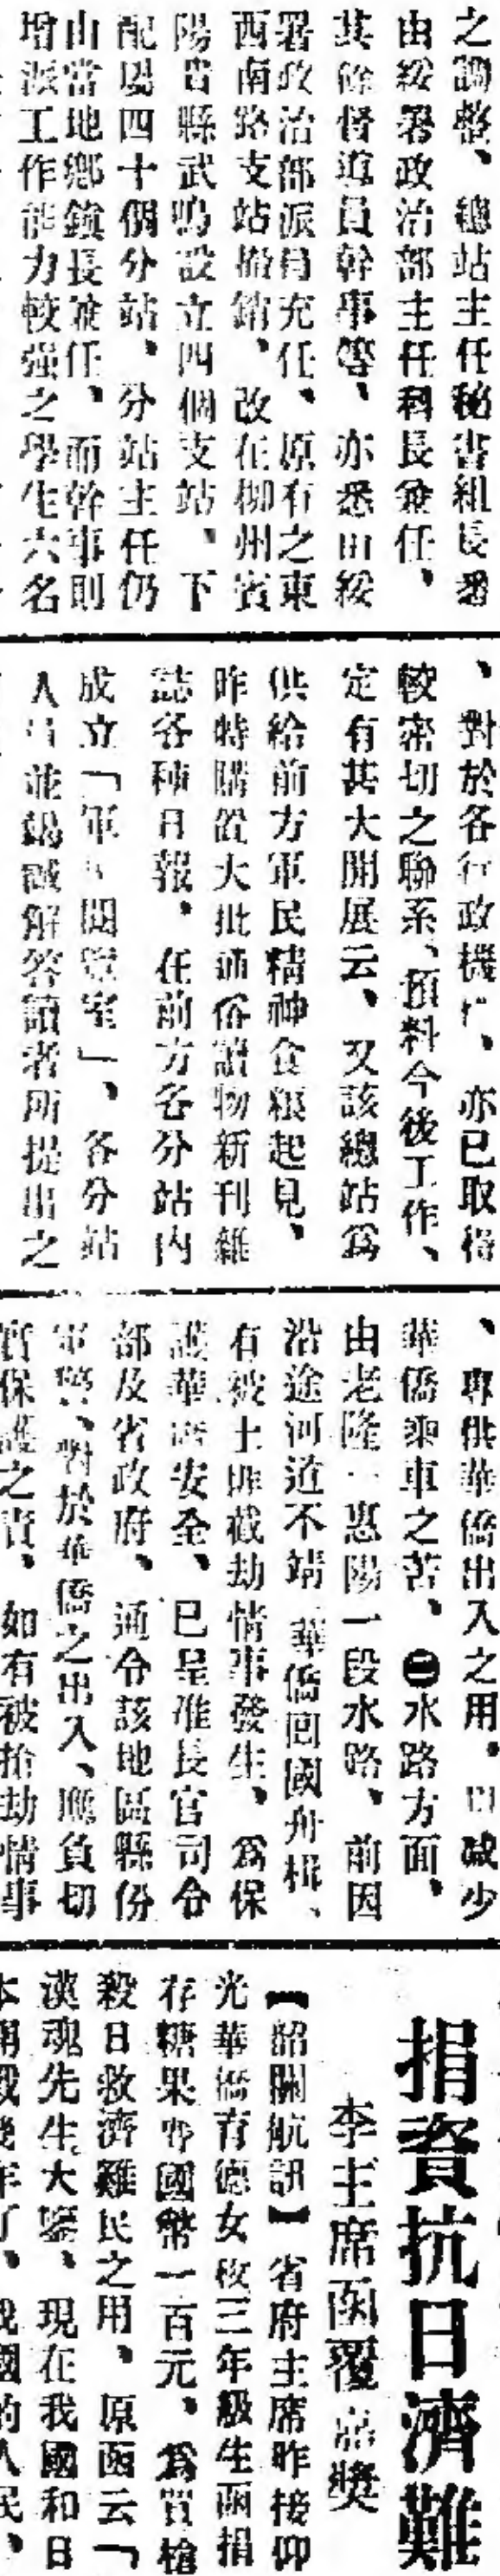 之調整、總站主任秘書組長悉
由綏署政治部主任科長兼任、
其餘督導員幹事等、亦悉由綏
署政治部派員充任、原有之東
西南路支站撤銷、改在柳州賓
陽 縣武鳴設立四個支站、下
配屬四十個分站、分站主任仍
由當地鄉鎮長兼任、而幹事則
增派工作能力較強之學生六名
、對於各行政機 、亦已取得
較密切之聯系、預料今後工作、
定有甚大開展云、又該總站為
供給前方軍民精神食糧起見、
昨特購置大批通俗讀物新刊雜
誌各種日報、在前方各分站內
成立「軍 閱覽室」、各分站
人員並竭誠解答讀者所提出之
、專供華僑出入之用、以減少
華僑乘車之苦、㊁水路方面、
由老隆一惠陽一段水路、前因
沿途河道不靖 華僑回國舟楫、
有被土匪截劫情事發生、為保
護華僑安全、已呈准長官司令
部及省政府、通令該地區縣份
軍警、對於華僑之出入、應負切
實保護之責、如有被搶劫情事
捐資抗日濟難
李主席函覆嘉獎
【韶關航訊】省府主席昨接仰
光華僑育德女校三年級生函捐
存糖果 國幣一百元、為買槍
殺日救濟難民之用、原函云「
漢魂先生大鑒、現在我國和日
本開戰幾年了、我國的人民、